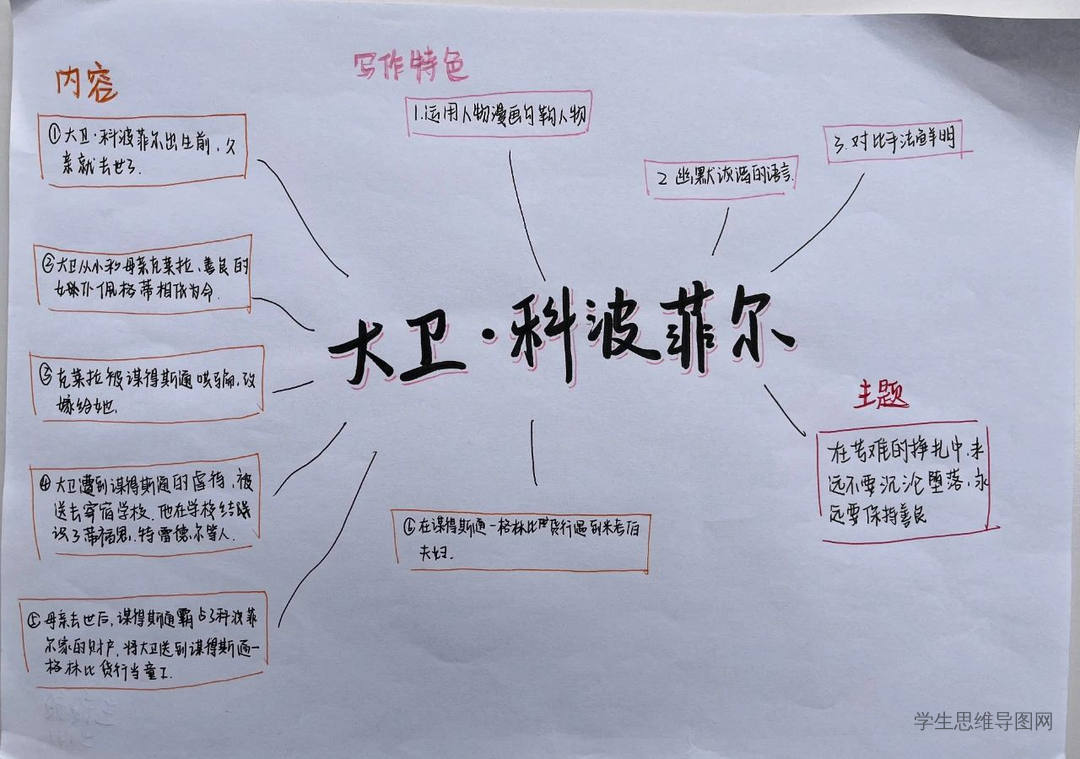 内容
①大卫·科波菲尔出生前，父
亲就去世了.
②大卫从小和母亲克莱拉、善良的
女仆佩格蒂相依为命.
③克莱拉被谋得斯通哄骗，改
嫁给她.
④大卫遭到谋得斯通的虐待，被
送去寄宿学校.他在学校结
识了蒂福思.特雷德尔等人.
⑤母亲去世后，谋得斯通霸占了科波菲
尔家的财产，将大卫送到谋得斯通一
格林比货行当童工.
写作特色
1.运用人物漫画勾勒人物
2 幽默诙谐的语言.
3.对比手法鲜明
大卫·科波菲尔
⑥在谋得斯通一格林比货行遇到米考伯
夫妇.
主题
在苦难的挣扎中，永
远不要沉沦堕落，永
远要保持善良
学生思维导图网